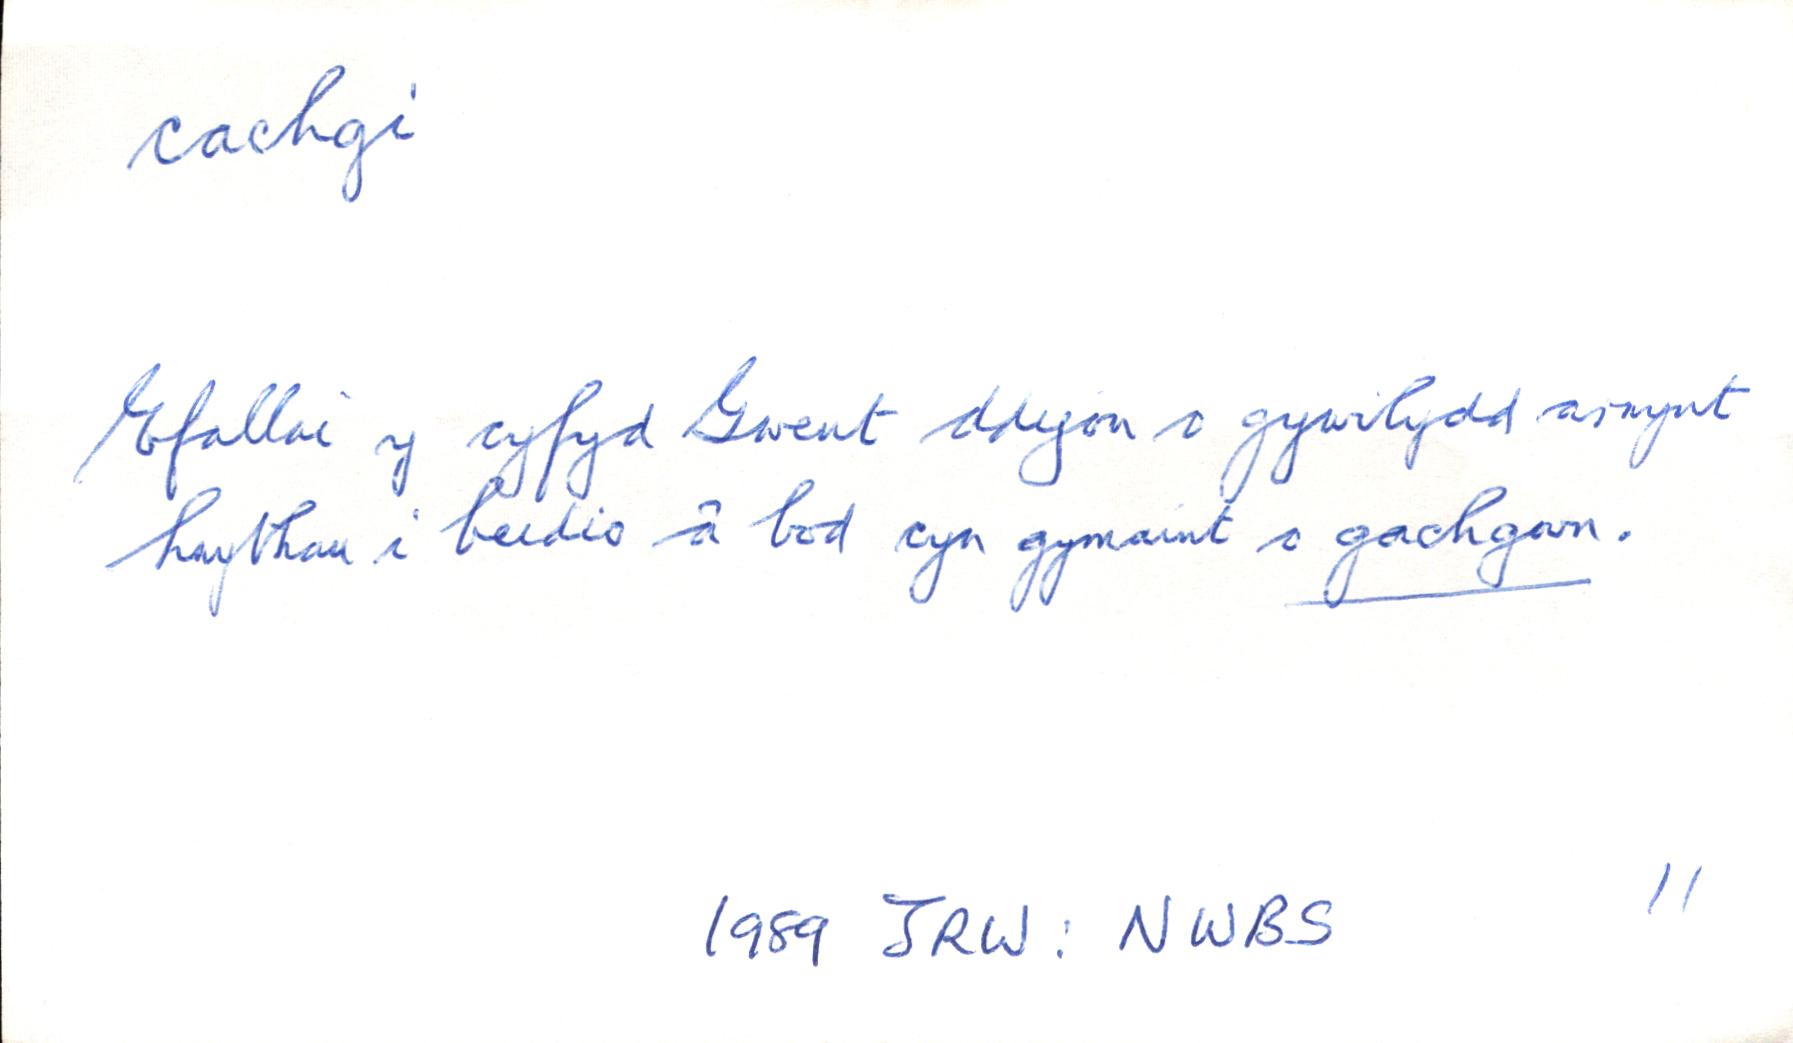 cachgi
Efallai y cyfyd Gwent ddigon o gywilydd arnynt
hwythau i beidio â bod cyn gymaint o gachgwn.
1989 JRW: NWBS 11